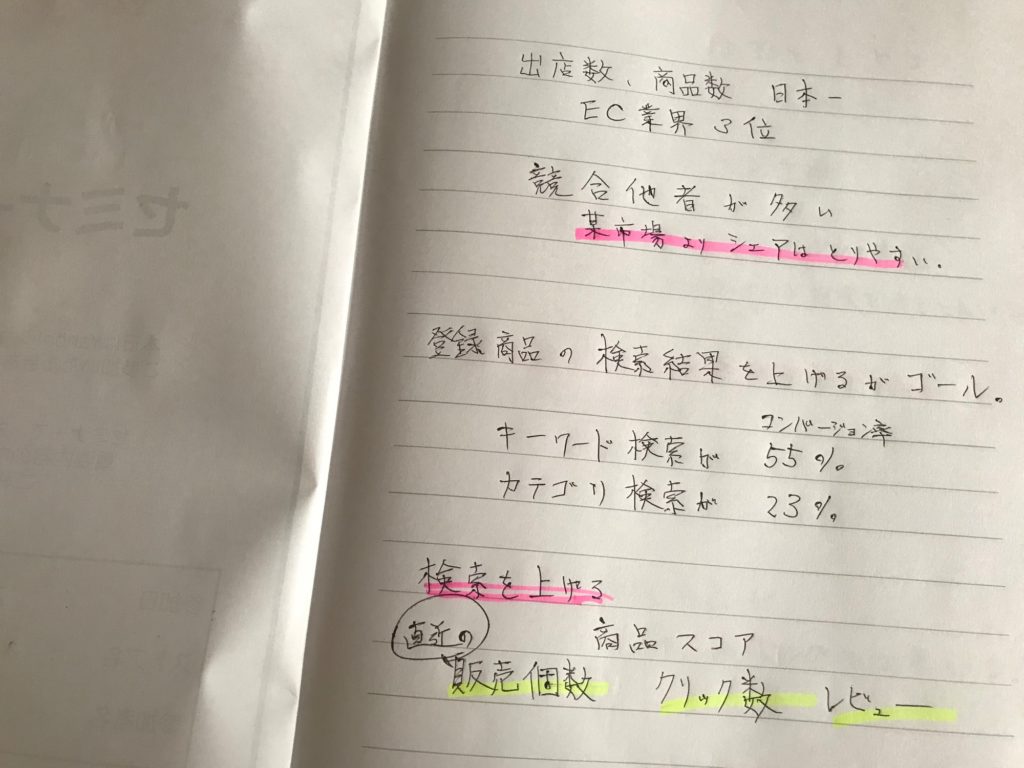 出店数、商品数 日本一
EC業界3位
競合他者が多い
某市場よりシェアはとりやすい。
登録商品の検索結果を上げるがゴール。
コンバージョン率
キーワード検索が 55%。
カテゴリ検索が 23%。
検索を上げる
直近の 商品スコア
販売個数 クリック数 レビュー